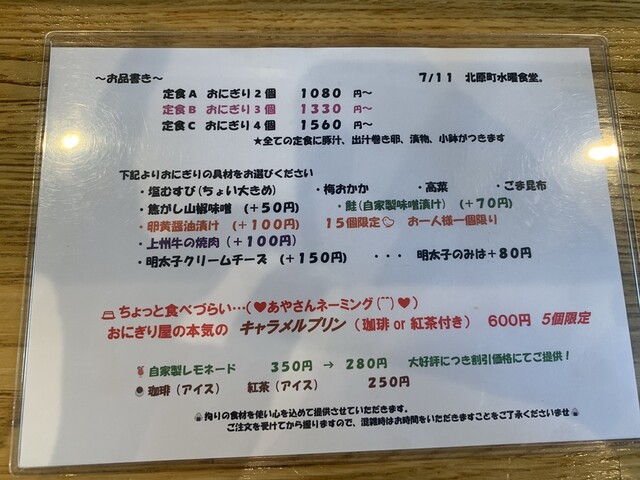 ～お品書き～ 7/11 北原町水曜食堂。
定食A おにぎり2個 1080 円～
定食B おにぎり3個 1330 円～
定食C おにぎり4個 1560 円～
★全ての定食に豚汁、出汁巻き卵、漬物、小鉢がつきます
下記よりおにぎりの具材をお選びください
・塩むすび(ちょい大きめ) ・梅おかか ・高菜 ・ごま昆布
・焦がし山椒味噌 (+50円) ・鮭(自家製味噌漬け) (+70円)
・卵黄醤油漬け (+100円) 15個限定 お一人様一個限り
・上州牛の焼肉 (+100円)
・明太子クリームチーズ (+150円) ・・・ 明太子のみは+80円
ちょっと食べづらい…(♥あやさんネーミング(¨)♥)
おにぎり屋の本気の キャラメルプリン (珈琲 or 紅茶付き) 600円 5個限定
自家製レモネード 350円 → 280円 大好評につき割引価格にてご提供!
珈琲(アイス) 紅茶(アイス) 250円
拘りの食材を使い心を込めて提供させていただきます。
ご注文を受けてから握りますので、混雑時はお時間をいただきますことをご了承くださいませ